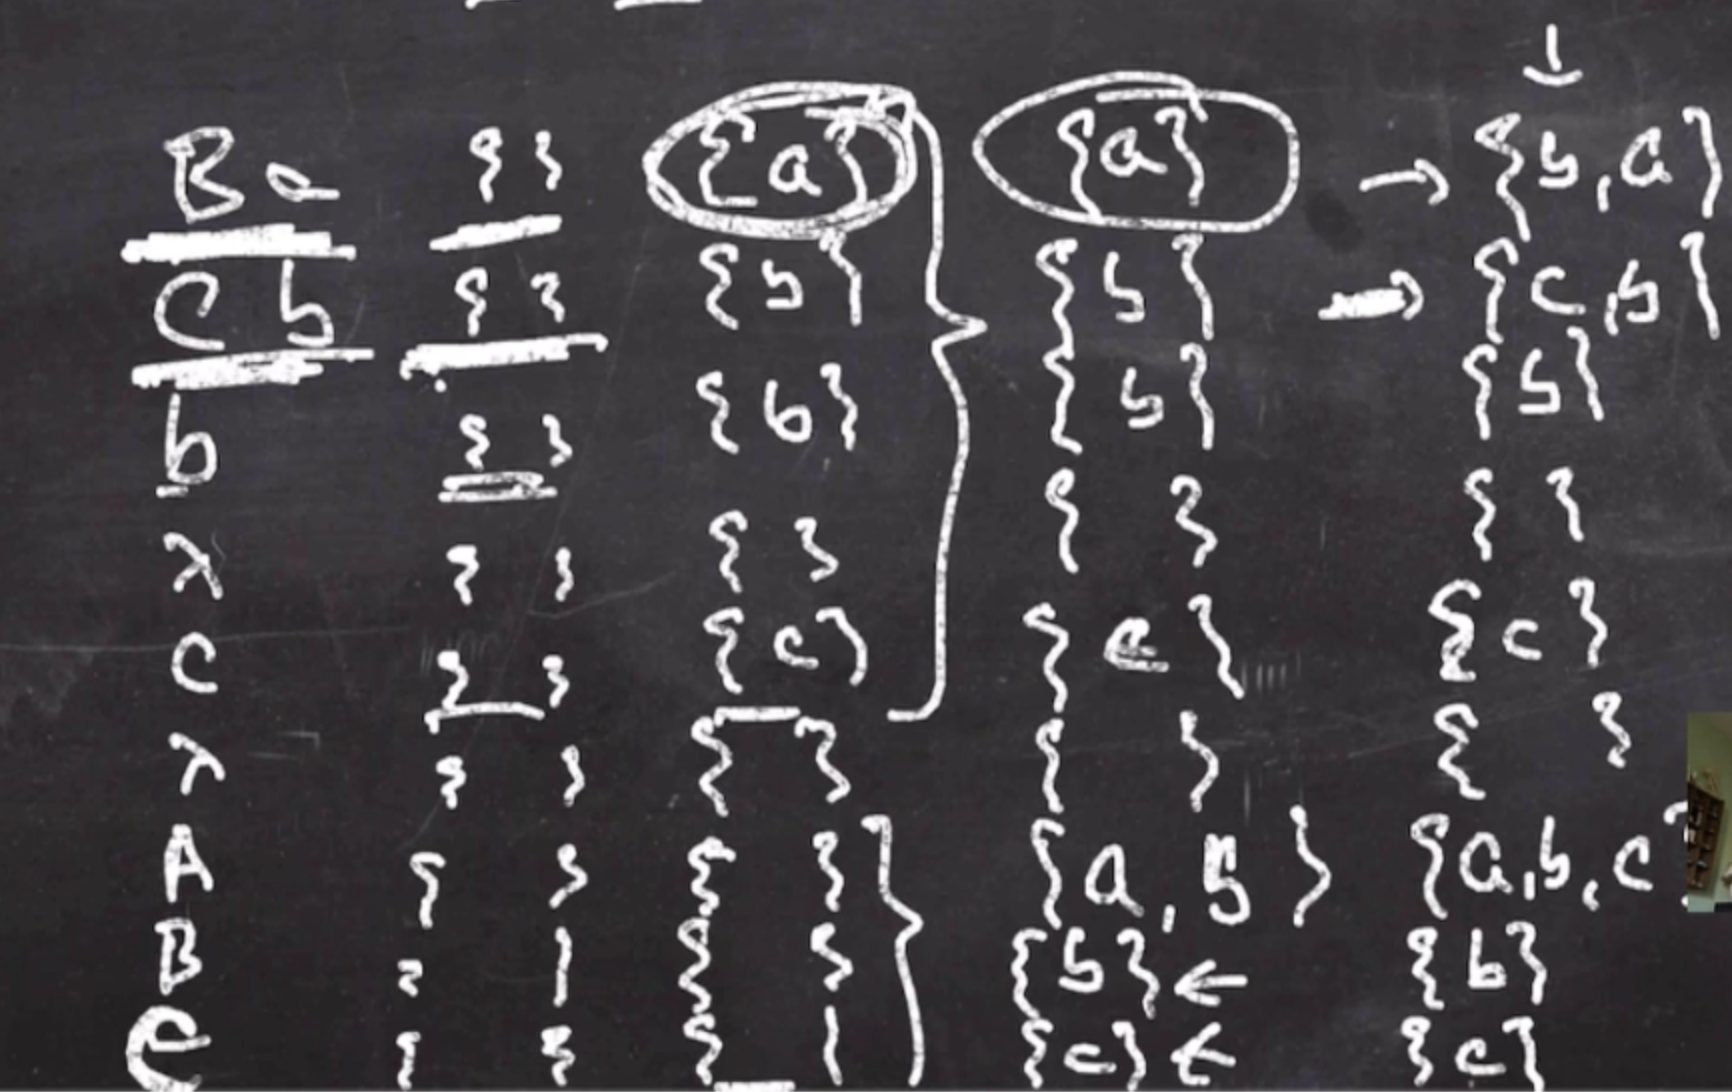 Ba { } {a} {a} → {b,a}
Cb { } {b} {b} → {c,b}
b { } {b} {b} {b}
λ { } { } { } { }
c { } {c} {c} {c}
λ { } { } { } { }
A { } { } {a,b} {a,b,c
B { } { } {b} ← {b}
C { } { } {c} ← {c}